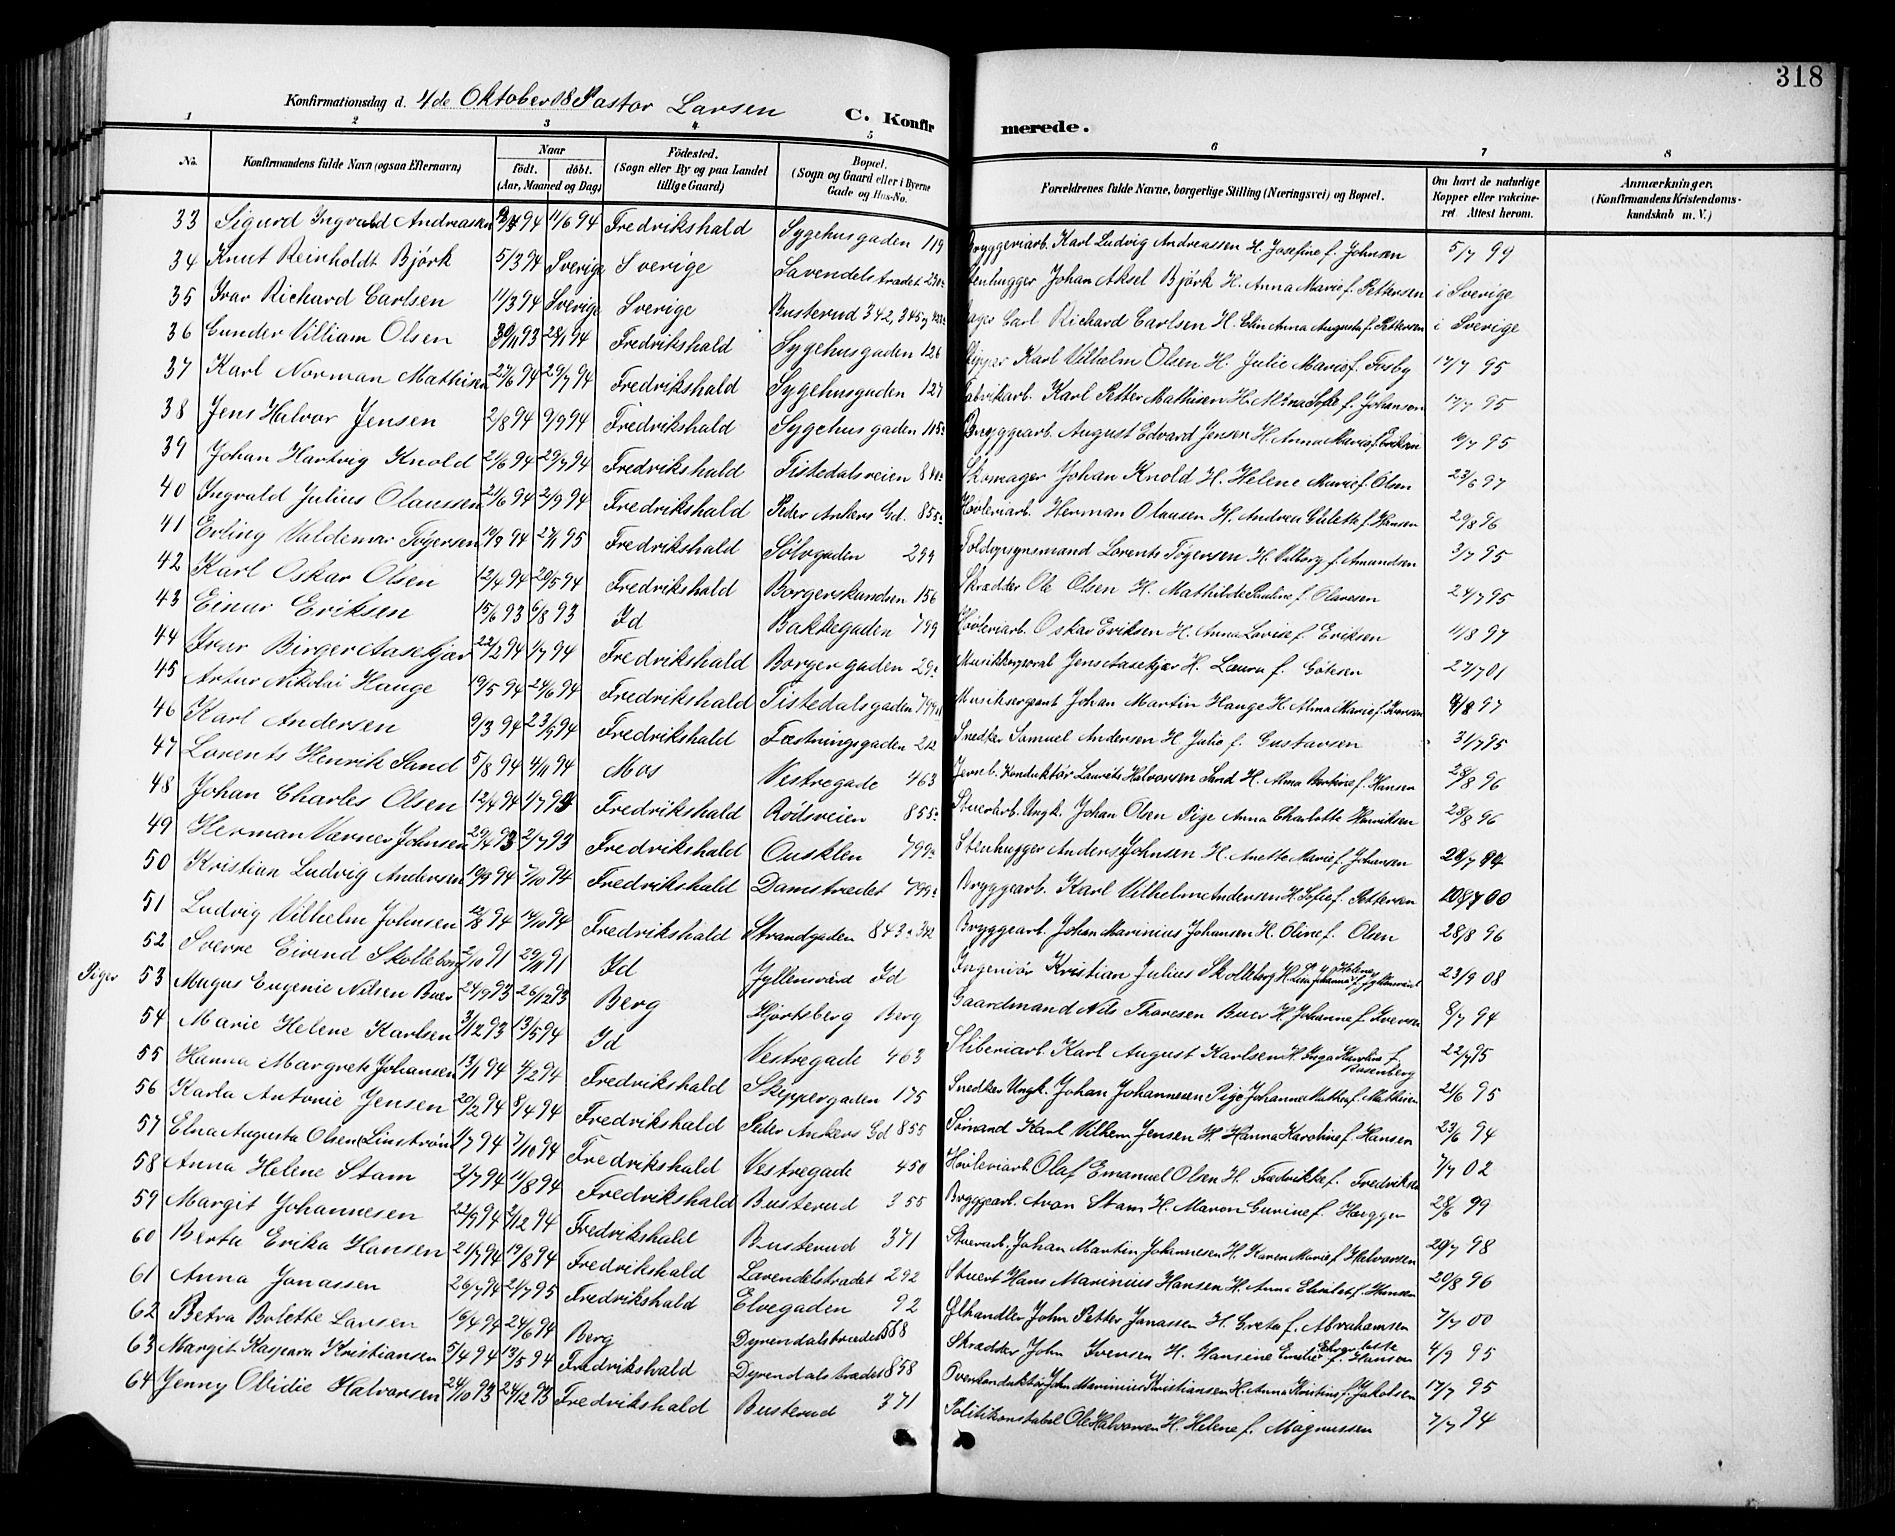 318
Konfirmationsdag d. 4de Oktober 08 Pastor Larsen C. Konfirmerede.
1 2 3 4 5 6 7 8
No. Konfirmandens fulde Navn (ogsaa Efternavn) Naar født. døbt. (Aar, Maaned og Dag) Fødested. (Sogn eller By og paa Landet tillige Gaard) Bopæl. (Sogn og Gaard eller i Byerne Gade og Hus-No. Forældrenes fulde Navne, borgerlige Stilling (Næringsvei) og Bopæl. Om havt de naturlige Kopper eller vakcineret. Attest herom. Anmærkninger. (Konfirmandens Kristendomskundskab m. V.)
33 Sigurd Ingvald Andreassen 94 11/6 94 Fredrikshald Sygehusgaden 119 Bryggeriarb. Karl Ludvig Andreassen H. Josefine f. Johnsen 5/7 99
34 Knut Reinholdt Björk 5/3 94 Sverige Sverige Lavendelstrædet Stenhugger Johan Aksel Björk H. Anna Marie f. Pettersen i Sverige
35 Ivar Richard Carlsen 11/3 94 Sverige Sverige Busterud 342, 345 Carl Richard Carlsen H. Elin Anna Augusta f. Pettersen i Sverige
36 Gunder Villiam Olsen 30/11 93 28/1 94 Fredrikshald Sygehusgaden 126 Karl Vilhelm Olsen H. Julie Marie f. Fosby 17/7 95
37 Karl Norman Mathisen 27/6 94 29/7 94 Fredrikshald Sygehusgaden 127 Fabrikarb. Karl Petter Mathisen H. Alma Sofie f. Johanson 17/7 95
38 Jens Halvor Jensen 2/8 94 9/9 94 Fredrikshald Sygehusgaden 115a Bryggearb. August Edvard Jensen H. Anna Marie f. Eriksen 10/7 95
39 Johan Hartvig Knold 21/6 94 29/7 94 Fredrikshald Tistedalsveien Skomager Johan Knold H. Helene Marie f. Olsen 23/6 97
40 Ingvald Julius Olaussen 21/6 94 2/9 94 Fredrikshald Peder Ankers Gd. 855a Høvleriarb. Herman Olausen H. Andrea f. Hansen 29/8 96
41 Erling Valdemar Tøgersen 19/9 94 27/1 95 Fredrikshald Sølvgaden 299 Toldopsynsmand Lorents Tøgersen H. Valborg f. Amundsen 3/7 95
42 Karl Oskar Olsen 12/4 94 20/5 94 Fredrikshald Borgerskandsen 156 Skrædder Ole Olsen H. Mathilde Pauline f. Olavesen 24/7 95
43 Einar Eriksen 15/6 93 6/8 93 Id Bakkegaden 799 Høvleriarb. Oskar Eriksen H. Anna Lovise f. Eriksen 11/8 97
44 Ivar Birger Aasekjær 22/2 94 1/7 94 Fredrikshald Borgergaden 29a Musikkorporal Jens Aasekjær H. Laura f. Götesen 27/7 01
45 Artur Nikolai Hauge 19/5 94 24/6 94 Fredrikshald Tistedalsgaden Musiksergeant Johan Martin Hauge H. Alma Marie f. Hansen 9/8 97
46 Karl Andersen 9/3 94 23/5 94 Fredrikshald Fæstningsgaden 212 Snedker Samuel Andersen H. Julie f. Gustavsen 31/7 95
47 Lorents Henrik Sund 5/8 94 4/11 94 Mos Vestregade 463 Jernb. Konduktør Laurits Halvorsen Sund H. Alma Bertine f. Hansen 28/8 96
48 Johan Charles Olsen 12/4 94 1/7 94 Fredrikshald Rødsveien 855a Stuerarb. Ungk. Johan Olsen Pige Anna Charlotte Henriksen 28/8 96
49 Herman Verner Johnsen 29/4 93 2/7 93 Fredrikshald Ouseklen 799a Stenhugger Anders Johnsen H. Anette Marie f. Johansen 28/7 94
50 Kristian Ludvig Andersen 19/9 94 7/10 94 Fredrikshald Damstrædet 799a Bryggearb. Karl Vilhelm Andersen H. Sofie f. Pettersen 00
51 Ludvig Vilhelm Johnsen 12/8 94 14/10 94 Fredrikshald Strandgaden 843a 342 Bryggearb. Johan Marinius Johansen H. Oline f. Olsen 28/8 96
52 Sverre Eivend Skolleborg 2/10 91 29/11 91 Id Gyllensvärd Id Ingeniør Kristian Julius Skolleborg H. Lisa Johanna Helene f. Gyllensvärd 23/9 08
Piger 53 Magna Eugenie Nilsen Buer 24/9 93 26/12 93 Berg Hjortsberg Berg Gaardmand Nils Thoresen Buer H. Johanne f. Iversen 8/7 94
54 Marie Helene Karlsen 3/12 93 13/5 94 Id Vestregade 463 Sliberiarb. Karl August Karlsen H. Inga Karoline f. Rosenberg 22/7 95
55 Hanna Margrete Johansen 13/1 94 4/2 94 Fredrikshald Skeppergaden 175 Snedker Ungk. Johan Johannesen Pige Johanne Mathea f. Mathisen 21/6 95
56 Karla Antonie Jensen 20/2 94 8/4 94 Fredrikshald Peder Ankers Gd 855 Sømand Karl Vilhem Jensen H. Hanna Karoline f. Hansen 23/6 94
57 Elna Augusta Olsen (Linstrøm 1/7 94 7/10 94 Fredrikshald Vestregade 450 Høvleriarb. Olaf Emanuel Olsen H. Fredrikke f. Fredriksen 7/7 02
58 Anna Helene Stam 2/7 94 11/8 94 Fredrikshald Busterud 355 Bryggearb. Aron Stam H. Maren Gurine f. Hægger 28/6 99
59 Margit Johannesen 22/9 94 2/12 94 Fredrikshald Busterud 371 Stuerarb. Johan Martin Johannesen H. Karen Marie f. Halvorsen 20/7 98
60 Berta Erika Hansen 21/7 94 19/8 94 Fredrikshald Lavendelstrædet 292 Stuert Hans Marinius Hansen H. Anna Elisabet f. Hansen 20/8 96
61 Anna Jonassen 26/7 94 21/7 95 Fredrikshald Elvegaden 92 Ølhandler John Petter Jonassen H. Greta f. Abrahamsen 7/7 00
62 Petra Bolette Larsen 19/4 94 24/6 94 Berg Dyrendalstrædet 558 Skrædder John Iversen H. Hansine Emelie f. Hansen 4/9 95
63 Margit Kaspara Kristiansen 5/4 94 13/5 94 Fredrikshald Dyrendalstrædet 858 Overkonduktør John Marinius Kristiansen H. Anna Kristine f. Jakobsen 17/7 95
64 Jenny Ovidie Halvorsen 24/10 93 24/12 93 Fredrikshald Busterud 371 Politikonstabel Ole Halvorsen H. Helene f. Magnussen 7/7 94